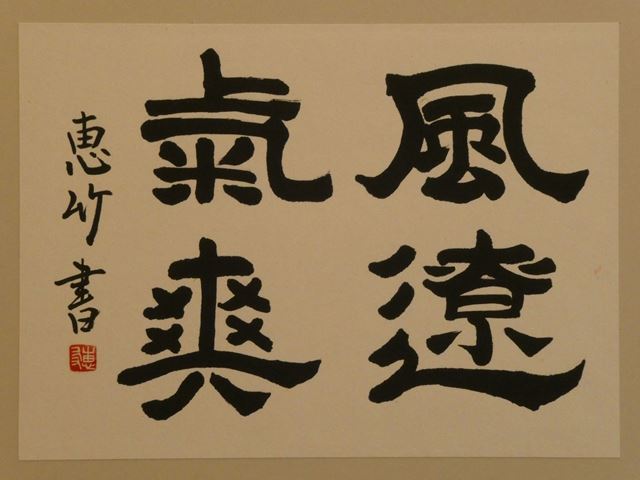 風遼
氣爽
恵竹書